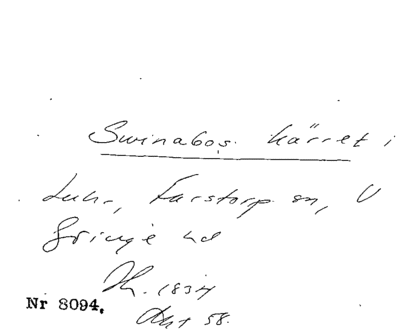 Swinabos kärret i
Luhr, Farstorp sn, V
Göinge hd
1834
Nr 8094. Akt 58.